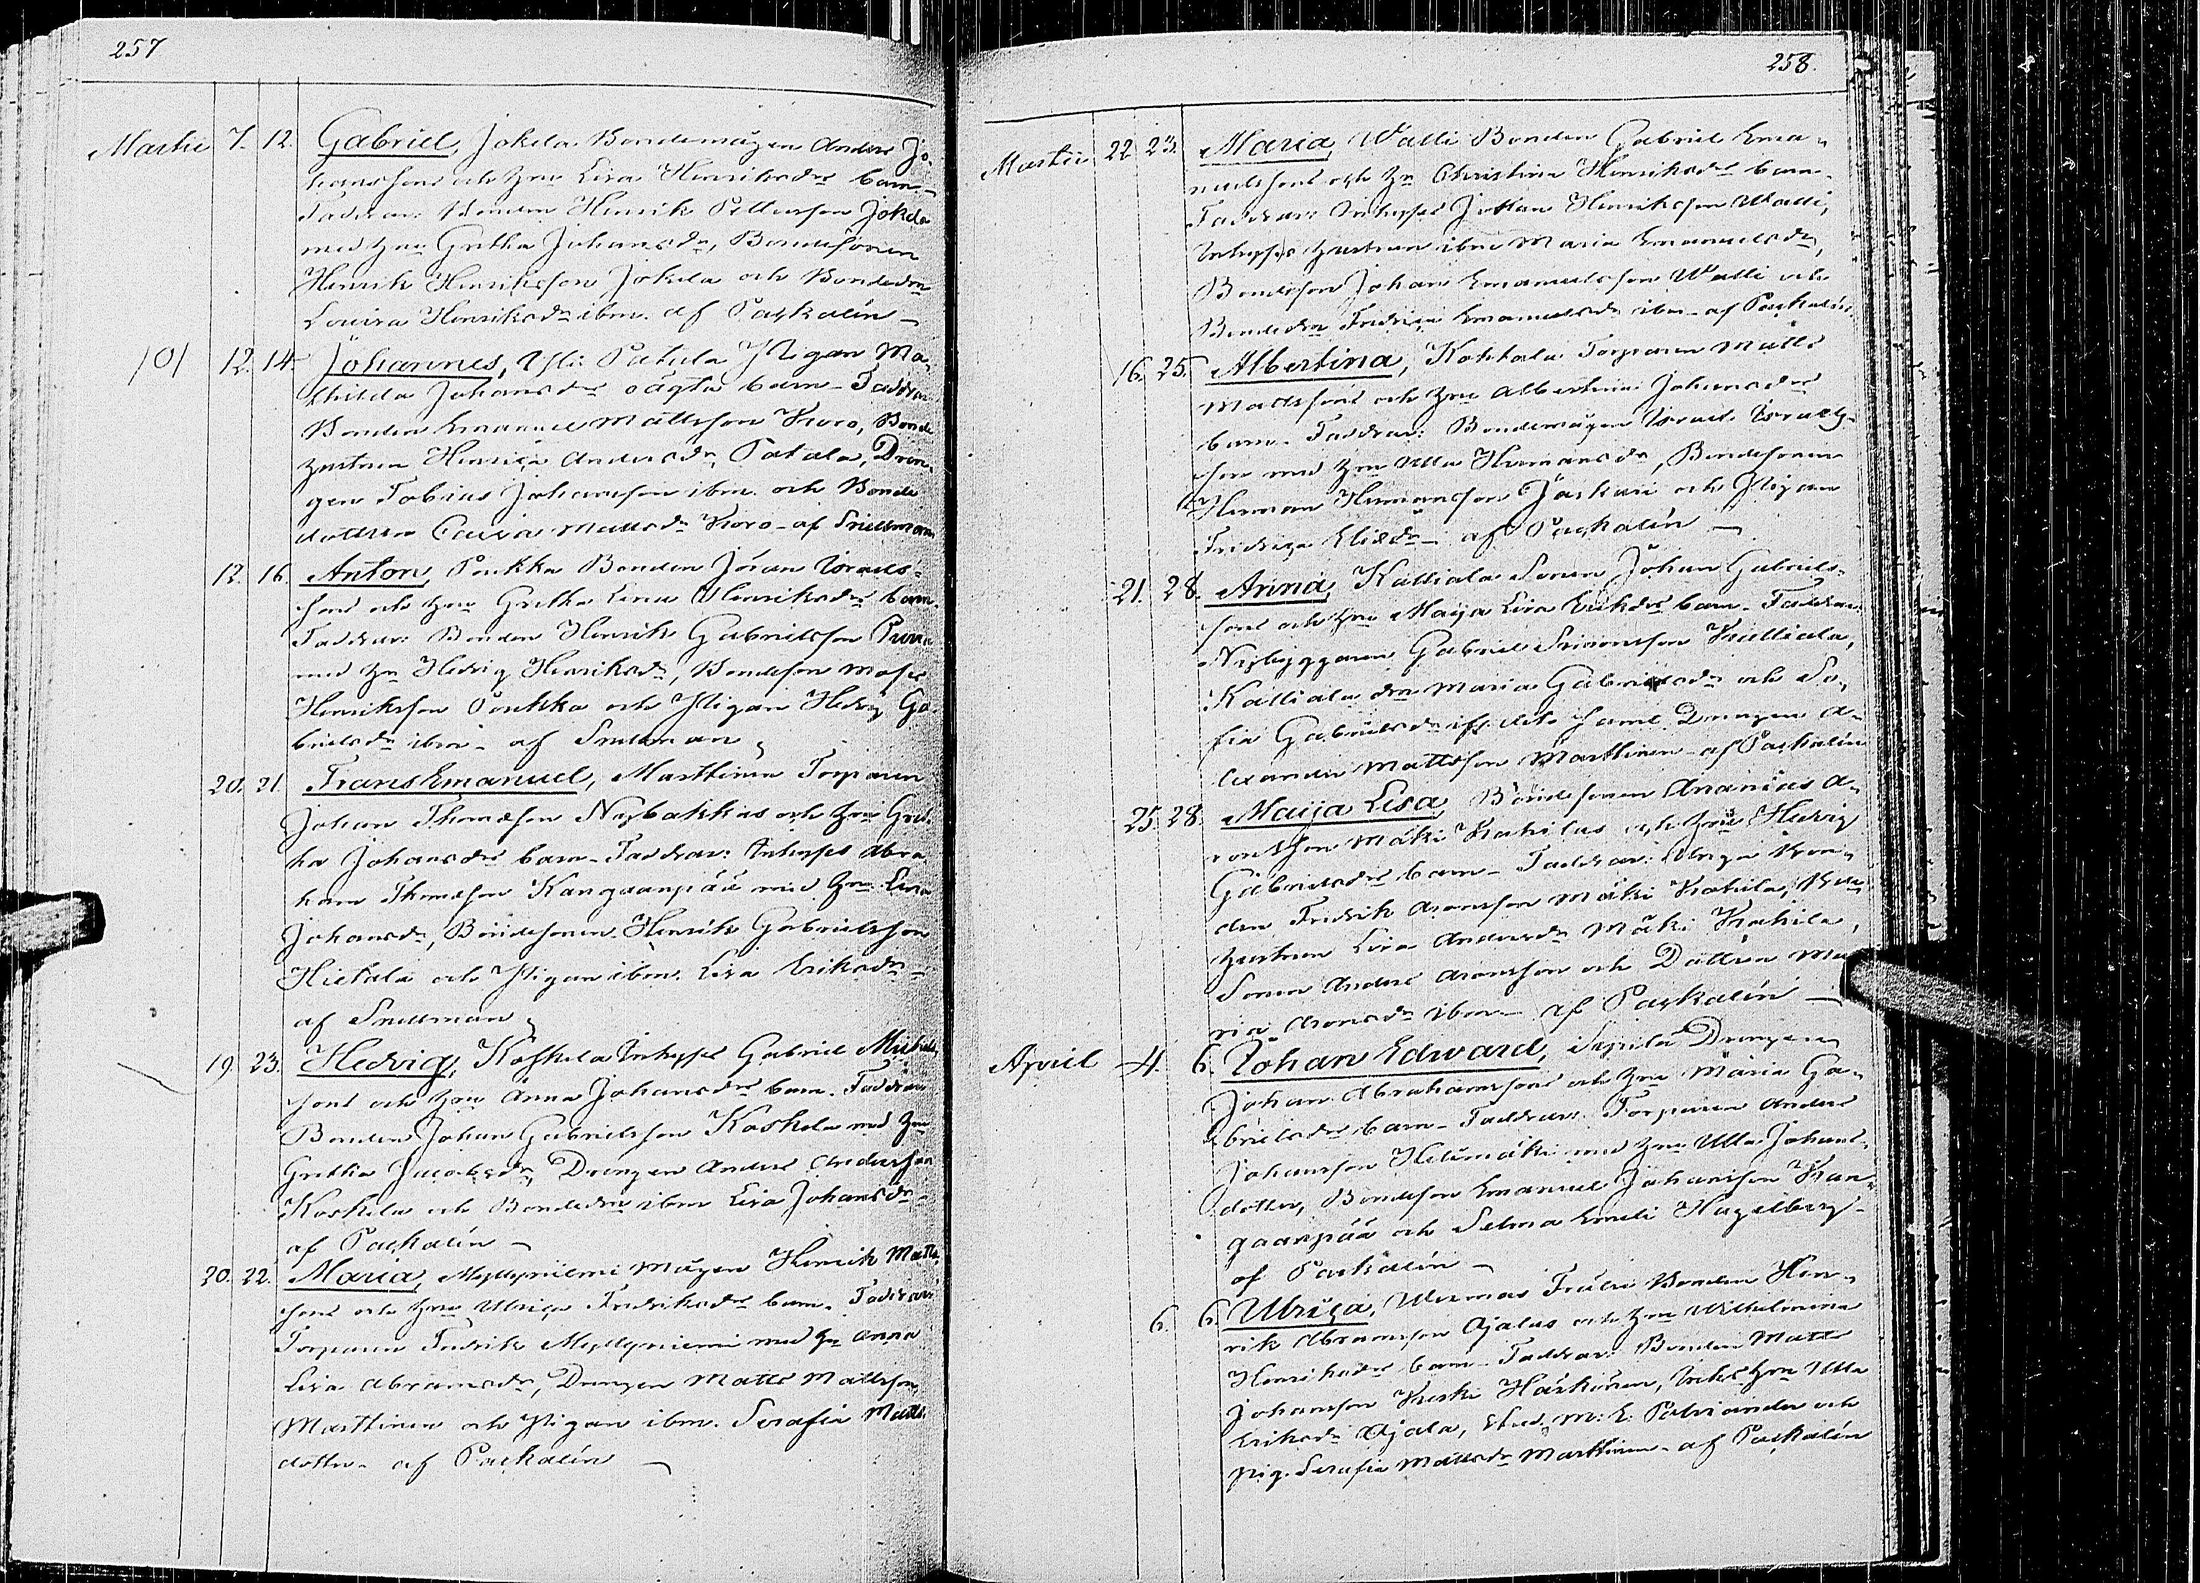 257
Martii 7. 12. Gabriel, Jokela Bondemågen Anders Jo-
hanssons och hu Lisa Henriksdrs barn-
Faddrar: Bonden Henrik Pettersson Jokela
med hu Gretha Johansdr, Bondesonen
Henrik Henriksson Jokela och Bondedrn
Lovisa Henriksdr ibm. af Paqvalin
/0/ 12. 14. Johannes, Yli Patala Pigan Ma-
thilda Johansdrs oägta barn- Faddrar
Bonden Emanuel Mattsson Koro, Bonde
hustrun Henrica Andersdr Patala, Drän-
gen Tobias Johansson ibm. och Bonde
dottren Caisa Mattsdr Koro- af Snellman
12. 16. Anton, Poukka Bonden Jöran Israels-
sons och hu Gretha Lena Henriksdrs barn.
Faddrar: Bonden Henrik Gabrielsson
med hu Hedvig Henriksdr, Bondeson Moses
Henriksson Poukka och Pigan Hedvig Ga-
brielsdr ibm- af Snellman
20. 21. Frans Emanuel, Marttinen Torparen
Johan Thomasson Nybakkas och hu Gret-
ha Johansdrs barn- Faddrar: Inhyses Abra
ham Thomasson Kangaanpää med hu Lisa
Johansdr, Bondesonen Henrik Gabrielsson
Hietala och Pigan ibm. Lisa Eriksdr-
af Snellman
19. 23. Hedvig, Koskela Inhyses Gabriel Michels
sons och hu Anna Johansdrs barn. Faddrar
Bonden Johan Gabrielsson Koskela med hu
Gretha Jacobsdr, Drängen Anders Andersson
Koskela och Bondedrn ibm Lisa Johansdr-
af Paqvalin
20. 22. Maria, Myllyniemi mågen Henrik Matts
sons och hu Ulrica Fredriksdrs barn. Faddrar:
Torparen Fredrik Myllyniemi med hu Anna
Lisa Abramsdr, Drängen Matts Mattsson
Marttinen och Pigan ibm. Serafia Matts
dotter- af Paqvalin
258.
Martii 22 23. Maria, Walli Bonden Gabriel Ema-
nuelssons och hu Christina Henriksdrs barn-
Faddrar: Inhyses Johan Henriksson Walli,
Inhyses hustrun ibm Maria Emanuelsdr,
Bondeson Johan Emanuelsson Walli och
Bondedrn Fredrica Emanuelsdr ibm- af Paqvalin
16. 25. Albertina, Kokkala Torparen Matts
Mattssons och hu Albertina Johansdrs
barn- Faddrar: Bondemågen Israel Israels-
son med hu Ulla Hermansdr, Bondesonen
Herman Hermansson Jaskari och Pigan
Fredrica Eliædr- af Paqvalin
21. 28. Anna, Kalliala Sonen Johan Gabriels-
sons och hu Maija Lisa Eriksdrs barn- Faddrar:
Nybyggaren Gabriel Simonsson Kalliala,
Kalliala drn Maria Gabrielsdr och So-
fia Gabrielsdr samt Drängen A-
lexander Mattsson Marttinen- af Paqvalin
25 28. Maija Lisa, Bondesonen Ananias A-
ronsson Mäki Kokilas och hu Hedvig
Gabrielsdrs barn- Faddrar:
Fredrik Aronsson Mäki Kokila,
hustrun Lisa Andersdr Mäki Kokila,
Sonen Anders Aronsson och Dottren Ma-
ria Aronsdr ibm- af Paqvalin
April 4. 6. Johan Edward, Seppilä Drängen
Johan Abrahamssons och hu Maria Ga-
brielsdrs barn- Faddrar: Torparen Anders
Johansson Hetemäki med hu Ulla Johans-
dotter, Bondeson Emanuel Johansson Kan-
gaanpää och Selma Emeli Hagelberg-
af Paqvalin
6. 6. Ulrica, Wermas Bonden Hen-
rik Abramsson Ojalas och hu Wilhelmina
Henriksdrs barn- Faddrar: Bonden Matts
Johansson Keski Härkönen, hu Ulla
Eriksdr Ojala, Stud. M. E. och
pig. Serafia Mattsdr Marttinen- af Paqvalin